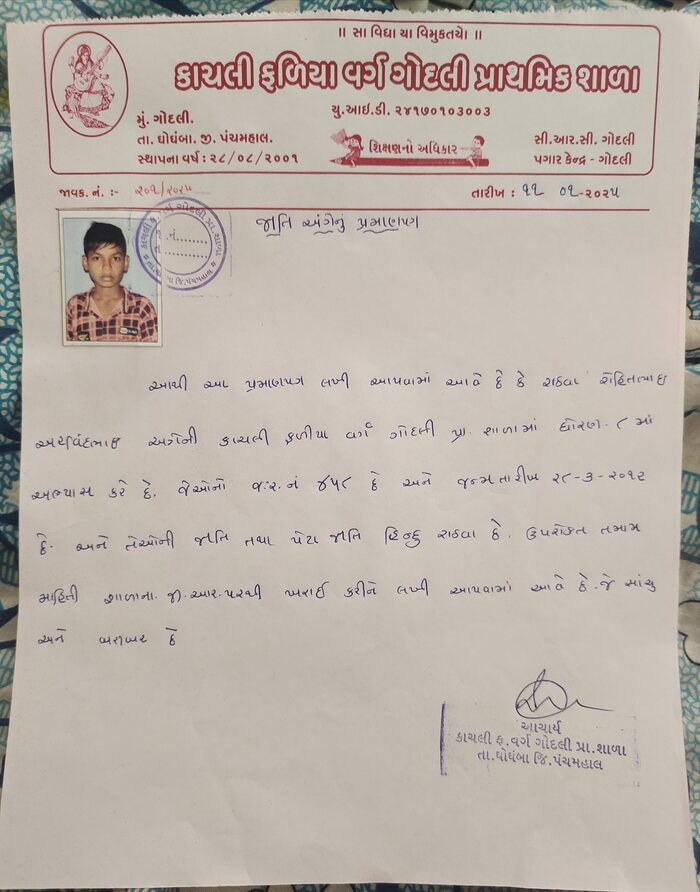 ॥ સા વિદ્યા યા વિમુક્તયે ॥
કાચલી ફળિયા વર્ગ ગોદલી પ્રાથમિક શાળા
યુ.આઇ.ડી. ૨૪૧૭૦૧૦૩૦૦૩
મું. ગોદલી.
તા. ઘોઘંબા. જી. પંચમહાલ.
સ્થાપના વર્ષ : ૨૮/૦૮/૨૦૦૧
શિક્ષણનો અધિકાર
સી.આર.સી. ગોદલી
પગાર કેન્દ્ર - ગોદલી
જાવક. નં. :- ૨૦૧/૨૦૨૫
તારીખ : ૧૧ ૦૧-૨૦૨૫
જાતિ અંગેનું પ્રમાણપત્ર
આથી આ પ્રમાણપત્ર લખી આપવામાં આવે છે કે રાઠવા રોહિતભાઇ
અરવિંદભાઇ અત્રેની કાચલી ફળીયા વર્ગ ગોદલી પ્રા. શાળામાં ધોરણ-૮ માં
અભ્યાસ કરે છે. જેઓનો જ.ર.નં ૪૫૮ છે અને જન્મ તારીખ ૨૮-૩-૨૦૧૨
છે. અને તેઓની જાતિ તથા પેટા જાતિ હિન્દુ રાઠવા છે. ઉપરોક્ત તમામ
માહિતી શાળાના જી.આર.પરથી ખરાઈ કરીને લખી આપવામાં આવે છે. જે સાચુ
અને બરાબર છે
આચાર્ય
કાચલી ફ.વર્ગ ગોદલી પ્રા.શાળા
તા.ઘોઘંબા જિ.પંચમહાલ